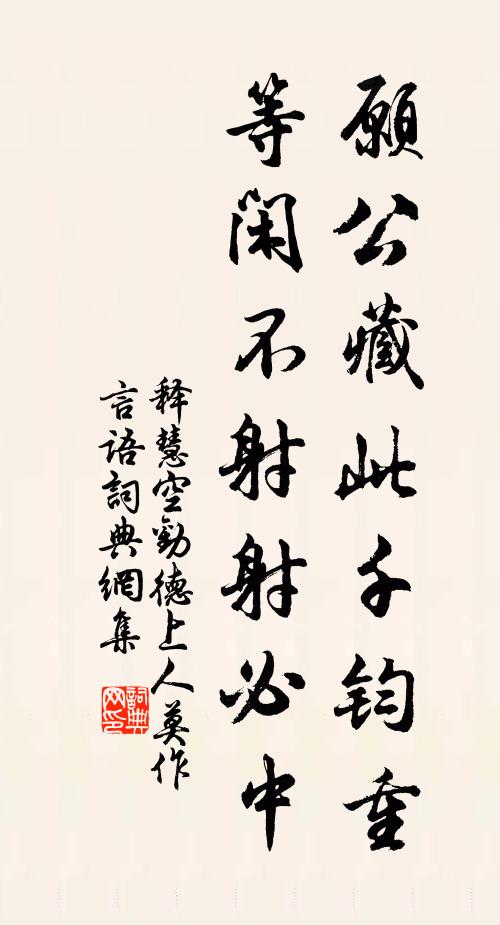 願公藏此千鈞重
等閑不射射必中
释慧空勸德上人莫作
言語詞典網集
詞典网印